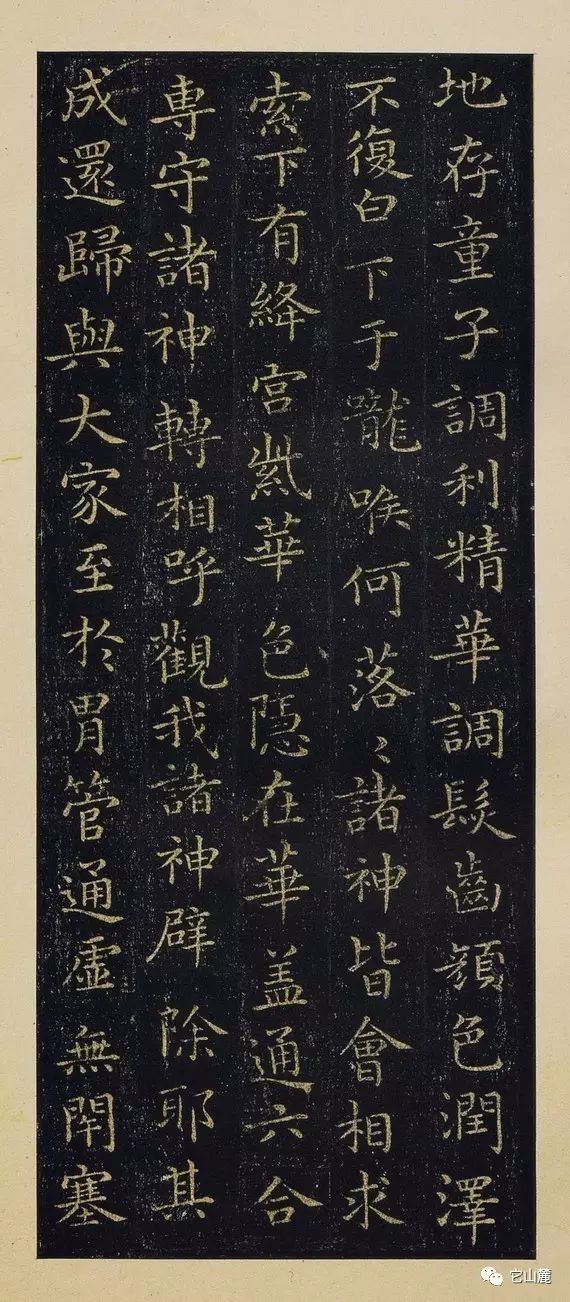 地存童子調利精華調髮齒顏色潤澤
不復白下于嚨喉何落〻諸神皆會相求
索下有絳宮紫華色隱在華盖通六合
專守諸神轉相呼觀我諸神辟除耶其
成還歸與大家至於胃管通虛無閇塞
它山麓